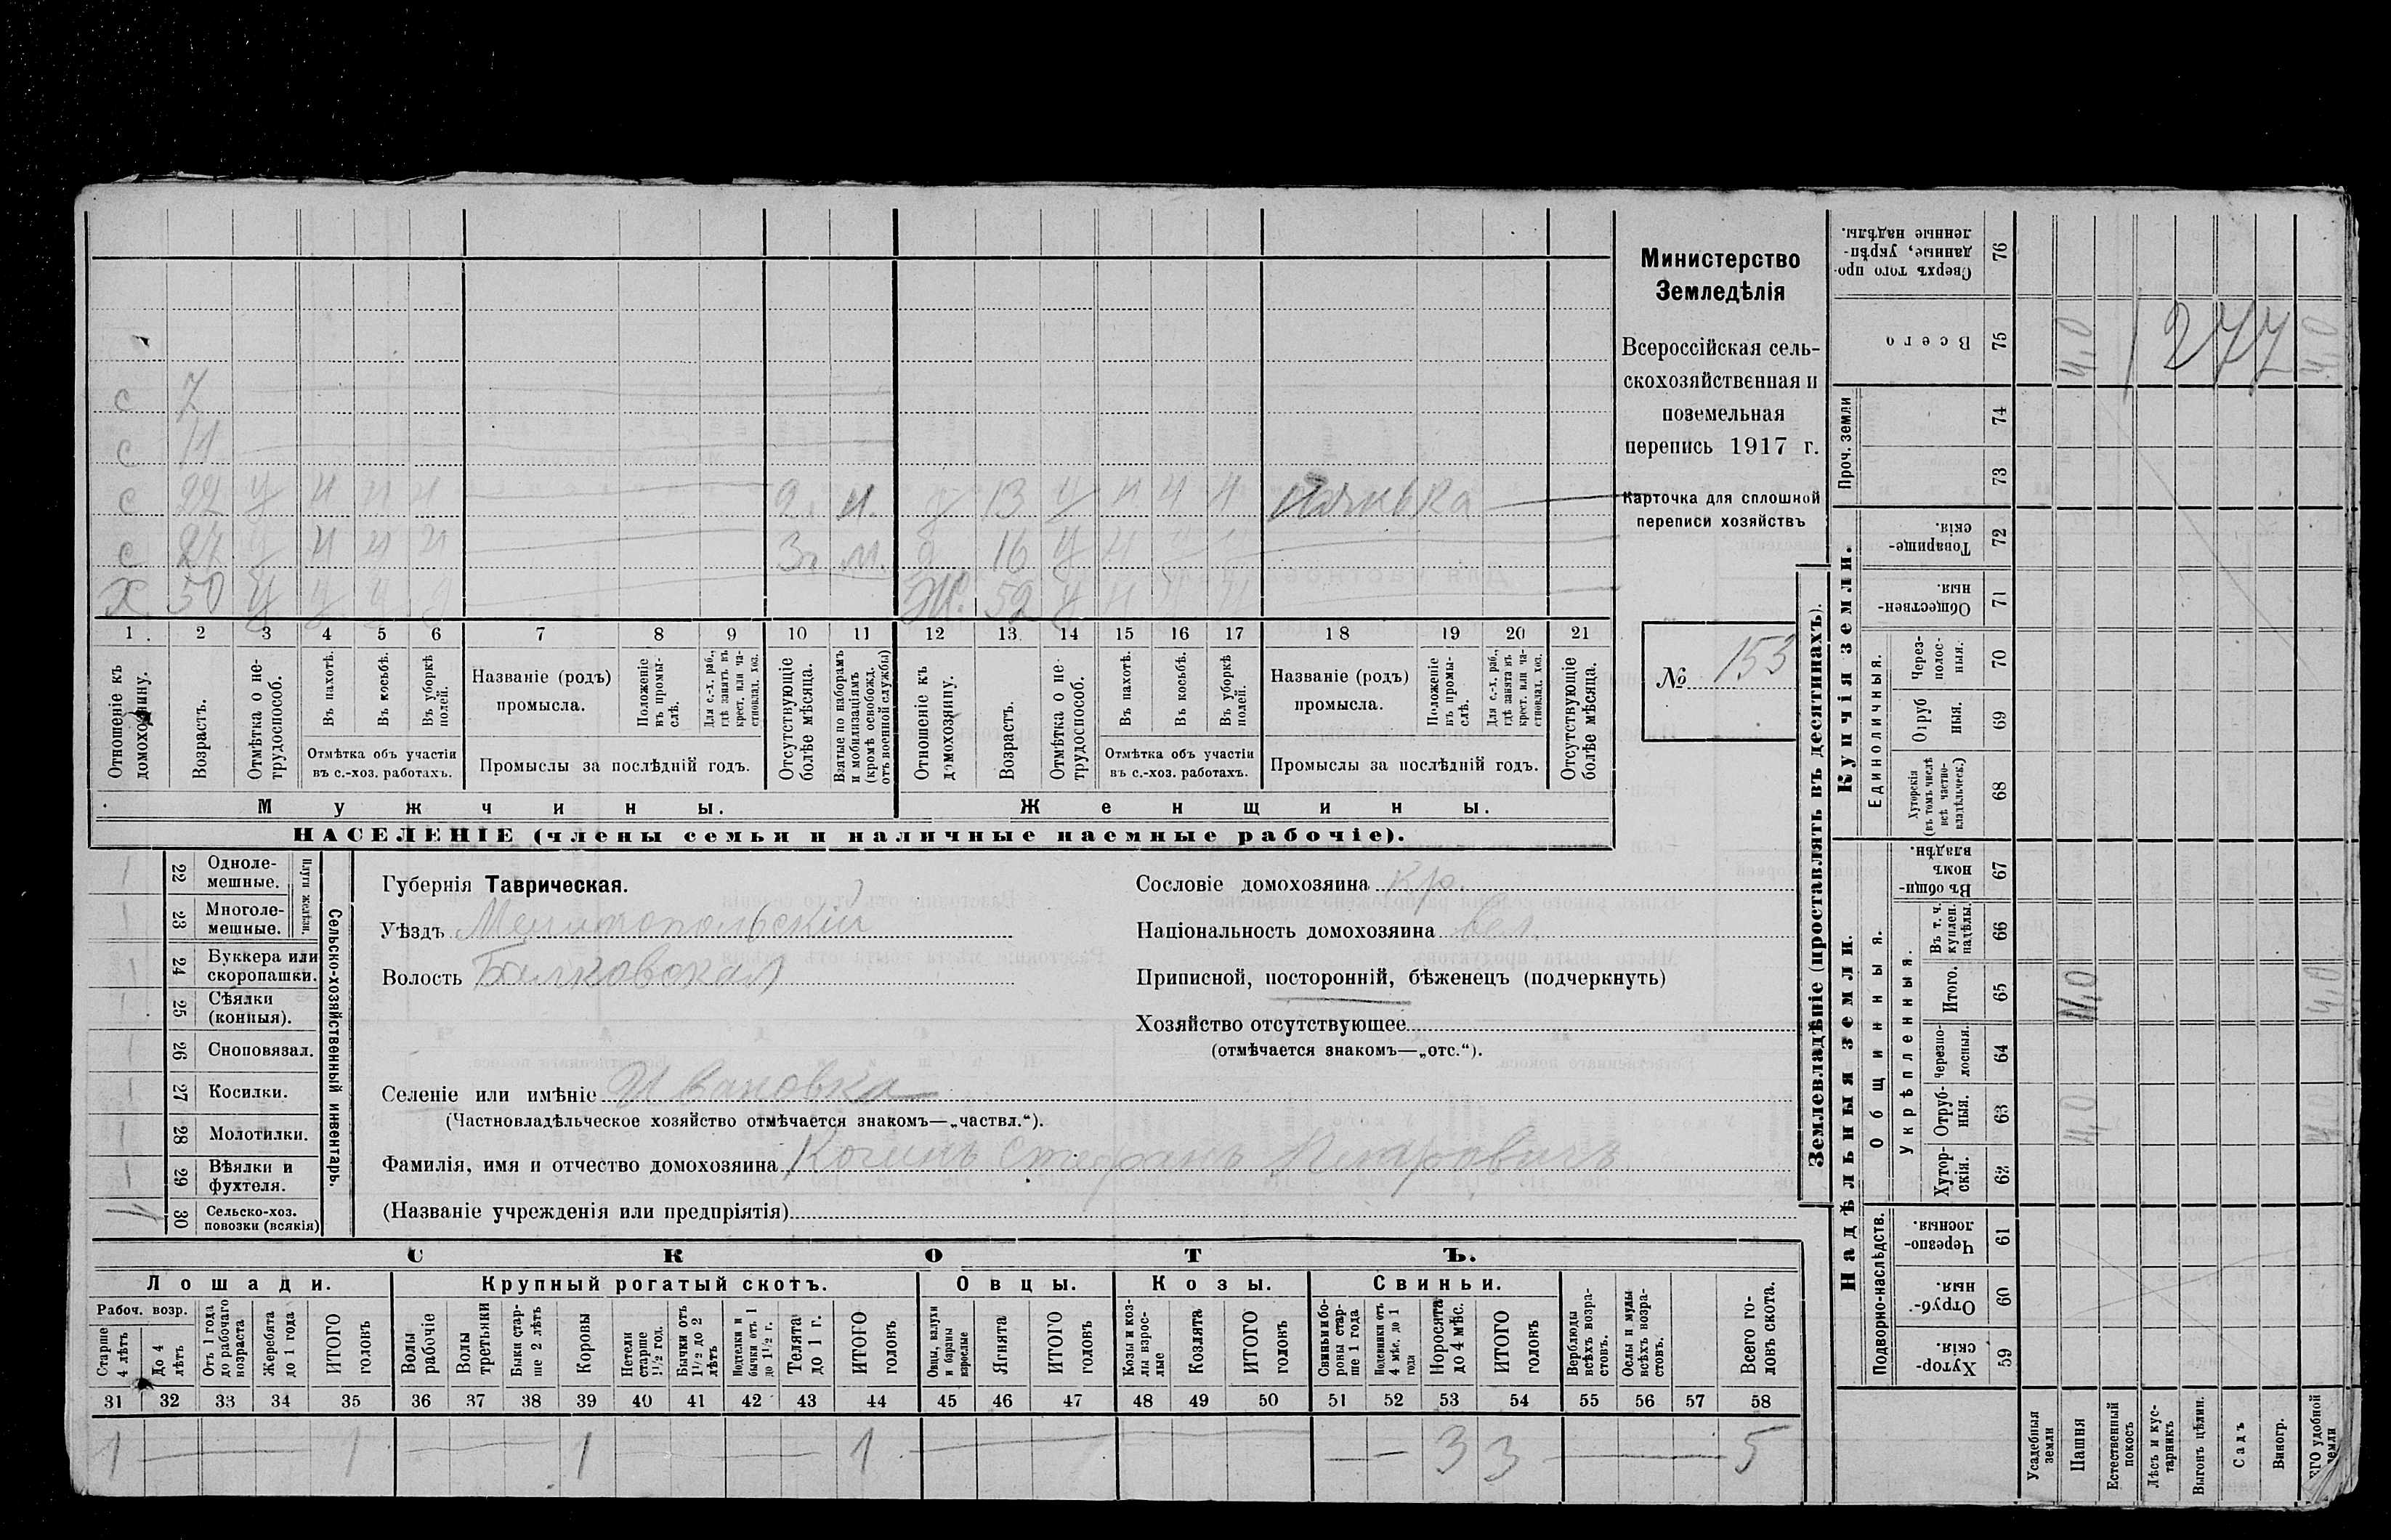 Министерство
Земледѣлія
Всероссійская сель-
скохозяйственная и
поземельная
перепись 1917 г.
Карточка для сплошной
переписи хозяйствъ
№ 153
с 7
с 11
с 22 2 г. м. 13
с 3 г. м. д 16
х 50 Ж. 52
1 2 3 4 5 6 7 8 9 10 11 12 13 14 15 16 17 18 19 20 21
Отношеніе къ домохозяину.
Возрастъ.
Отмѣтка о не-трудоспособ.
Въ пахотѣ.
Въ косьбѣ.
Въ уборкѣ полей.
Отмѣтка объ участіи
въ с.-хоз. работахъ.
Названіе (родъ)
промысла.
Положеніе въ промы-слѣ.
Для с.-х. раб., гдѣ занятъ въ крест. или ча-стновлад. хоз.
Промыслы за послѣдній годъ.
Отсутствующіе болѣе мѣсяца.
Взятые по наборамъ и мобилизаціямъ (кромѣ освобожд. отъ военной службы)
Отношеніе къ домохозяину.
Возрастъ.
Отмѣтка о не-трудоспособ.
Въ пахотѣ.
Въ косьбѣ.
Въ уборкѣ полей.
Отмѣтка объ участіи
въ с.-хоз. работахъ.
Названіе (родъ)
промысла.
Положеніе въ промы-слѣ.
Для с.-х. раб., гдѣ занята въ крест. или ча-стновлад. хоз.
Промыслы за послѣдній годъ.
Отсутствующіе болѣе мѣсяца.
Мужчины.
Женщины.
НАСЕЛЕНІЕ (члены семьи и наличные наемные рабочіе).
22 Одноле-мешные.
23 Многоле-мешные.
Плуги желѣзн.
24 Буккера или скоропашки.
25 Сѣялки (конныя).
26 Сноповязал.
27 Косилки.
28 Молотилки.
29 Вѣялки и фухтеля.
30 Сельско-хоз. повозки (всякія)
Сельско-хозяйственный инвентарь.
Губернія Таврическая.
Уѣздъ Мелитопольскій
Волость Балковская
Сословіе домохозяина кр.
Національность домохозяина вел.
Приписной, посторонній, бѣженецъ (подчеркнуть)
Хозяйство отсутствующее
(отмѣчается знакомъ—„отс.“).
Селеніе или имѣніе Ивановка
(Частновладѣльческое хозяйство отмѣчается знакомъ—„частвл.“).
Фамилія, имя и отчество домохозяина Стефанъ Петровичъ
(Названіе учрежденія или предпріятія)
СКОТЪ.
Лошади.
Крупный рогатый скотъ.
Овцы.
Козы.
Свиньи.
Рабоч. возр.
Старше 4 лѣтъ
До 4 лѣтъ
Отъ 1 года до рабочаго возраста
Жеребята до 1 года
ИТОГО головъ
Волы рабочіе
Волы третьяки
Быки стар-ше 2 лѣтъ
Коровы
Нетели старше 1½ год.
Бычки отъ 1½ до 2 лѣтъ
Подтелки и бычки отъ 1 до 1½ г.
Телята до 1 г.
ИТОГО головъ
Овцы, валухи и бараны взрослые
Ягнята
ИТОГО головъ
Козы и коз-лы взрос-лые
Козлята
ИТОГО головъ
Свиньи и бо-роны стар-ше 1 года
Подсвинки отъ 4 мѣс. до 1 года
Поросята до 4 мѣс.
ИТОГО головъ
Верблюды всѣхъ возра-стовъ.
Ослы и мулы всѣхъ возра-стовъ.
Всего го-ловъ скота.
31 32 33 34 35 36 37 38 39 40 41 42 43 44 45 46 47 48 49 50 51 52 53 54 55 56 57 58
1 1 1 1 3 3 5
Землевладѣніе (проставлять въ десятинахъ).
Купчія земли.
Надѣльныя земли.
Сверхъ того про-данные, укрѣп-ленные надѣлы. 76
Всего 75
4,0 4,0
1277
Проч. земли
74
73
Товарище-скія. 72
Обществен-ныя. 71
Единоличныя.
Через-полос-ныя. 70
Отруб ныя. 69
Хуторскія (въ томъ числѣ всѣ частно-владѣльческ.) 68
Общинныя.
Въ общи-номъ владѣн. 67
Укрѣпленныя.
Въ т. ч. куплен. надѣлы. 66
Итого. 65
4,0 4,0
Черезпо-лосныя. 64
Отруб-ныя. 63
4,0 4,0
Хутор-скія. 62
Подворно-наслѣдств.
Черезпо-лосныя. 61
Отруб-ныя. 60
Хутор-скія. 59
Усадебныя земли
Пашня
Естественный покосъ
Лѣсъ и кус-тарникъ
Выгонъ цѣлин.
Садъ
Виногр.
удобной земли